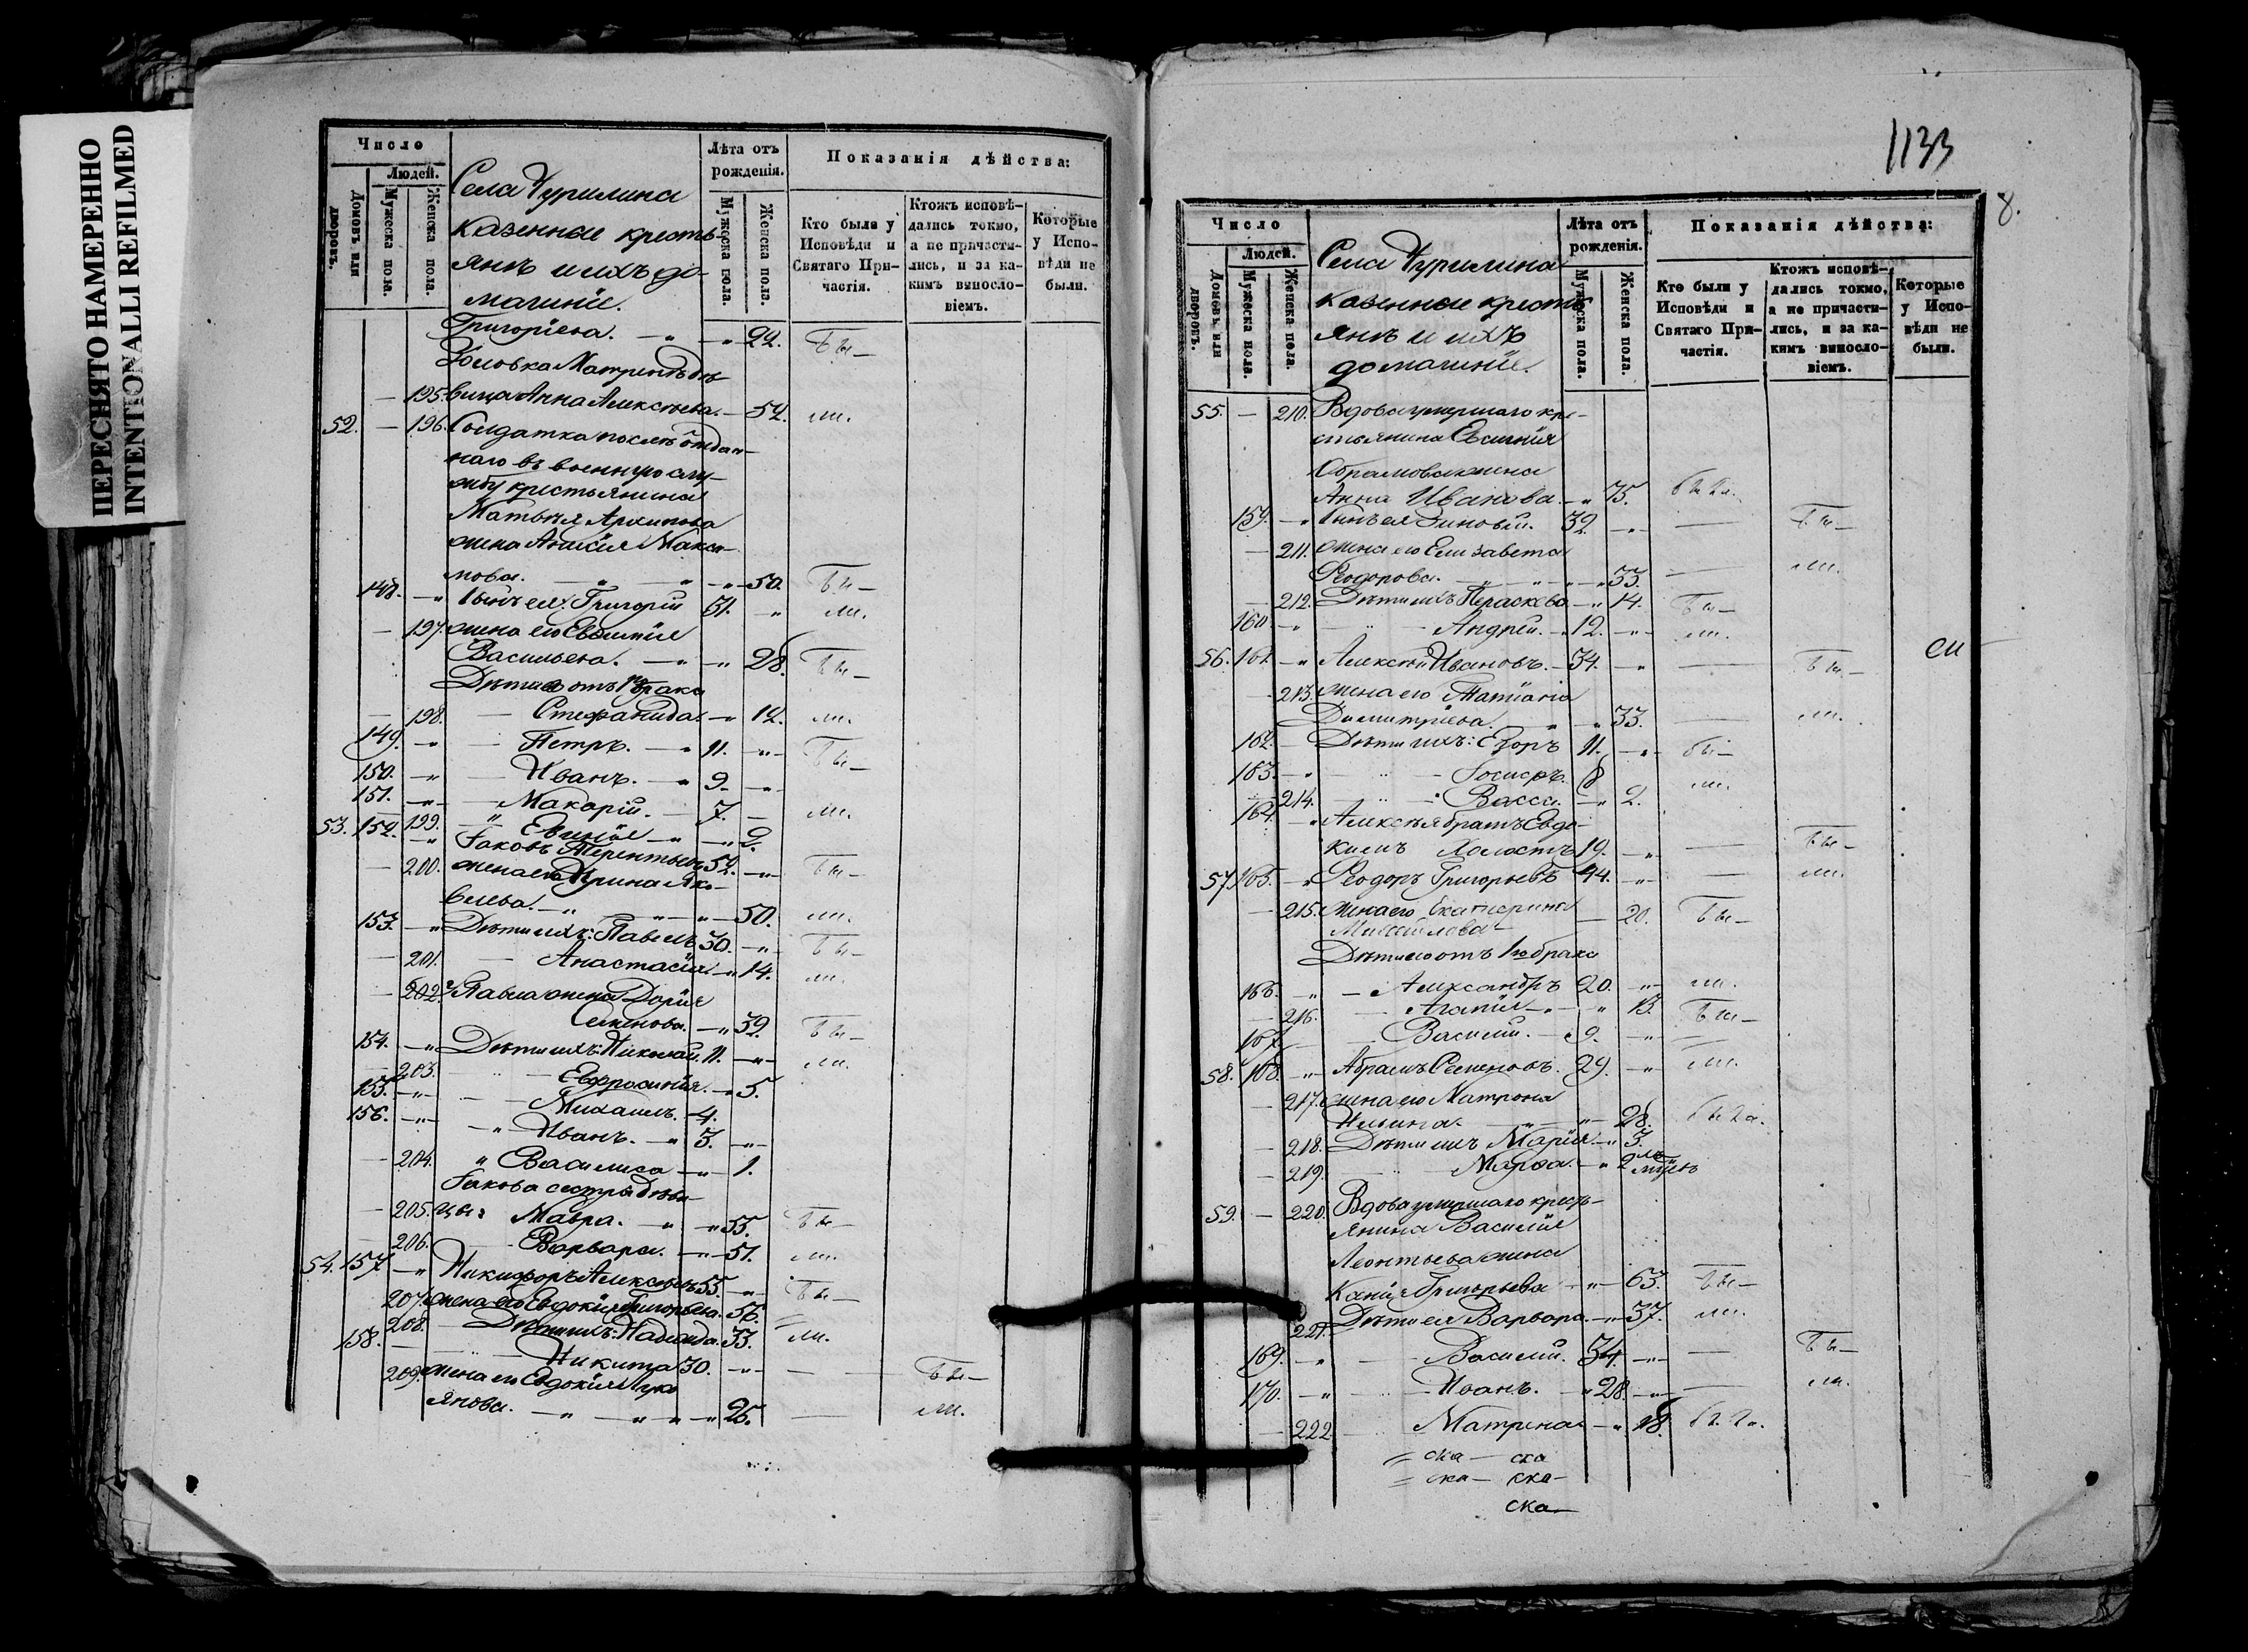 ПЕРЕСНЯТО НАМЕРЕННО
INTENTIONALLI REFILMED
Число
Людей.
Домовъ или дворовъ.
Мужеска пола.
Женска пола.
Села Чурилина
казенные кресть-
янъ и ихъ до-
машніе.
Лѣта отъ рожденія.
Мужеска пола.
Женска пола.
Показанія дѣйства:
Кто были у Исповѣди и Святаго Причастія.
Ктожъ исповѣ-
дались токмо,
а не причасти-
лись, и за ка-
кимъ винословіемъ.
Которые у Испо-
вѣди не были.
Григоріева. — " — " — 22. бы —
Золовка Матрены дѣ-
— 195. вица Анна Алексѣева. — 54. ли.
52. — 196. Солдатка послѣ отдан-
наго въ военную слу-
жбу крестьянина
Матвѣя Архипова
жена Анисія Макси-
мова. — " — " — " — 50. бы —
148. — " Сынъ ея: Григорій 31. — " ли.
— 197. жена его Евфимія
Васильева. — " — " 28. бы —
Дѣти его отъ 1го брака
— 198. — Стефанида. — " 12. ли.
149. — " — Петръ. — " 11. — " — бы —
150. — " — Иванъ. — " 9. — " —
151. — " — Макарій. — 7. — ли.
199. — " Евгенія — " — " 2.
53. 152. — " Іаковъ Терентьевъ 52. — " — бы —
— 200. жена его Ирина Яко-
влева. — " — " — " — 50. ли.
153. — " Дѣти ихъ: Павелъ 30. — " — бы —
— 201. — Анастасія — " 14. ли.
— 202. Павла жена Дарія
Семенова. — " 32. бы —
154. — " Дѣти ихъ: Николай. 11. — " — ли.
— 203. — Евфросинія. — " 5.
155. — " — Михаилъ. — 4.
156. — " — " Иванъ. — " 3. — " —
— 204. " Василиса — " — 1.
Іакова сестры дѣви-
— 205. цы: Мавра. — " — " 55. бы —
— 206. — Варвара. — " — 51. ли.
54. 157. — " Никифоръ Алексѣевъ 55. — " — бы —
207. жена его Евдокія Григорьева. 56.
208. — Дѣти ихъ: Надежда. 33. ли.
158. — — Никита 30. — " — — бы —
209. жена его Евдокія Лукі-
янова. — " — " — " — " 25. — ли.
1133
8.
Число
Людей.
Домовъ или дворовъ.
Мужеска пола.
Женска пола.
Села Чурилина
казенные кресть-
янъ и ихъ
домашніе.
Лѣта отъ рожденія.
Мужеска пола.
Женска пола.
Показанія дѣйства:
Кто были у Исповѣди и Святаго Причастія.
Ктожъ исповѣ-
дались токмо,
а не причасти-
лись, и за ка-
кимъ винословіемъ.
Которые у Испо-
вѣди не были.
55. — 210. Вдова умершаго кре-
стьянина Евсигнія
Абрамова жена
Анна Иванова. — " 75. была.
159. — " Сынъ ея Зиновій. 32. — " — — бы —
— 211. жена его Елизавета
Ѳеодорова. — " — " — " 33. — ли.
— 212. Дѣти ихъ Параскева — " 14. бы —
160. — " — Андрей. — " 12. — " — ли.
56. 161. — " Алексѣй Ивановъ. — 34. — " — бы —
— 213. жена его Татіана
Димитріева. — " — " 33. — ли.
162. — Дѣти ихъ: Егоръ 11. — " — бы —
163. — " — Іосифъ. 8 ли.
— 214. — Васса. — " 2.
164. — " Алексѣя братъ Евдо-
кимъ холостъ 19. — " — бы —
57. 165. — " Ѳеодоръ Григорьевъ 44. — " — — ли.
— 215. жена его Екатерина
Михайлова — 20. бы —
Дѣти его отъ 1го брака
166. — " — Александръ 20. — " — ли.
— 216. — Агапія — " — " 13. бы —
167. — Василій. — " 9. — " —
58. 168. — " Абрамъ Семеновъ. 29. — " ли.
— 217. жена его Матрона
Ильина. — " — " — 28. была.
— 218. Дѣти ихъ Марія — " 3.
— 219. — Марѳа. — " 2
59. — 220. Вдова умершаго кресть-
янина Василія
Леонтьева жена
Григорьева — " — 63. бы —
221. Дѣти ея Варвара. — " — 37. ли.
169. — " — Василій. 34. — " — — бы —
170. — " — Иванъ. — " 28. — " — — ли.
— 222. Матрена — " 18. была.